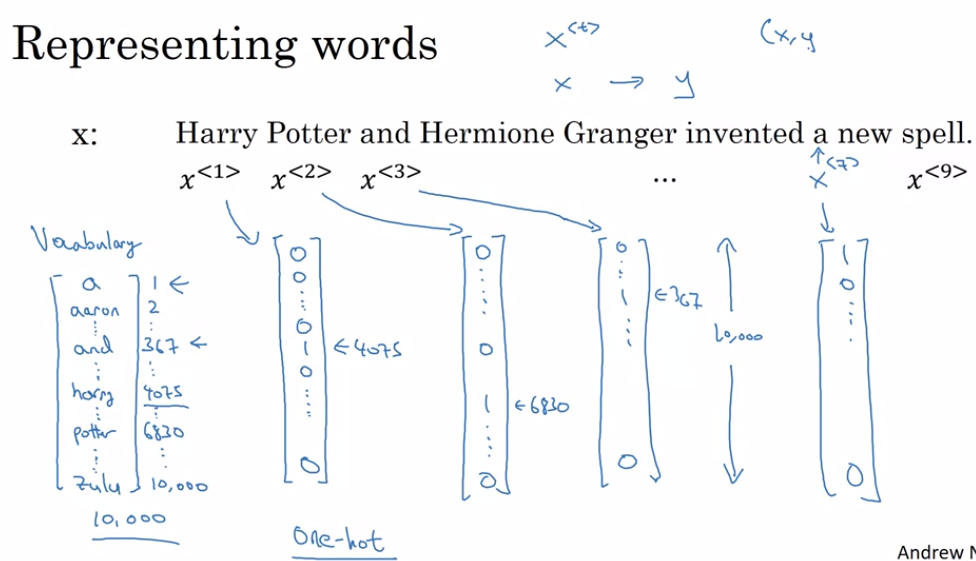 Representing words
x<t>
(x,y
x → y
x: Harry Potter and Hermione Granger invented a new spell.
x<1> x<2> x<3> ... x<7> x<9>
Vocabulary
a 1 ←
aaron 2
and 367 ←
harry 4075
potter 6830
zulu 10,000
10,000
0
0
0
1 ← 4075
0
0
0
0
1 ← 6830
0
0
1 ← 367
0
10,000
1
0
0
One-hot
Andrew N